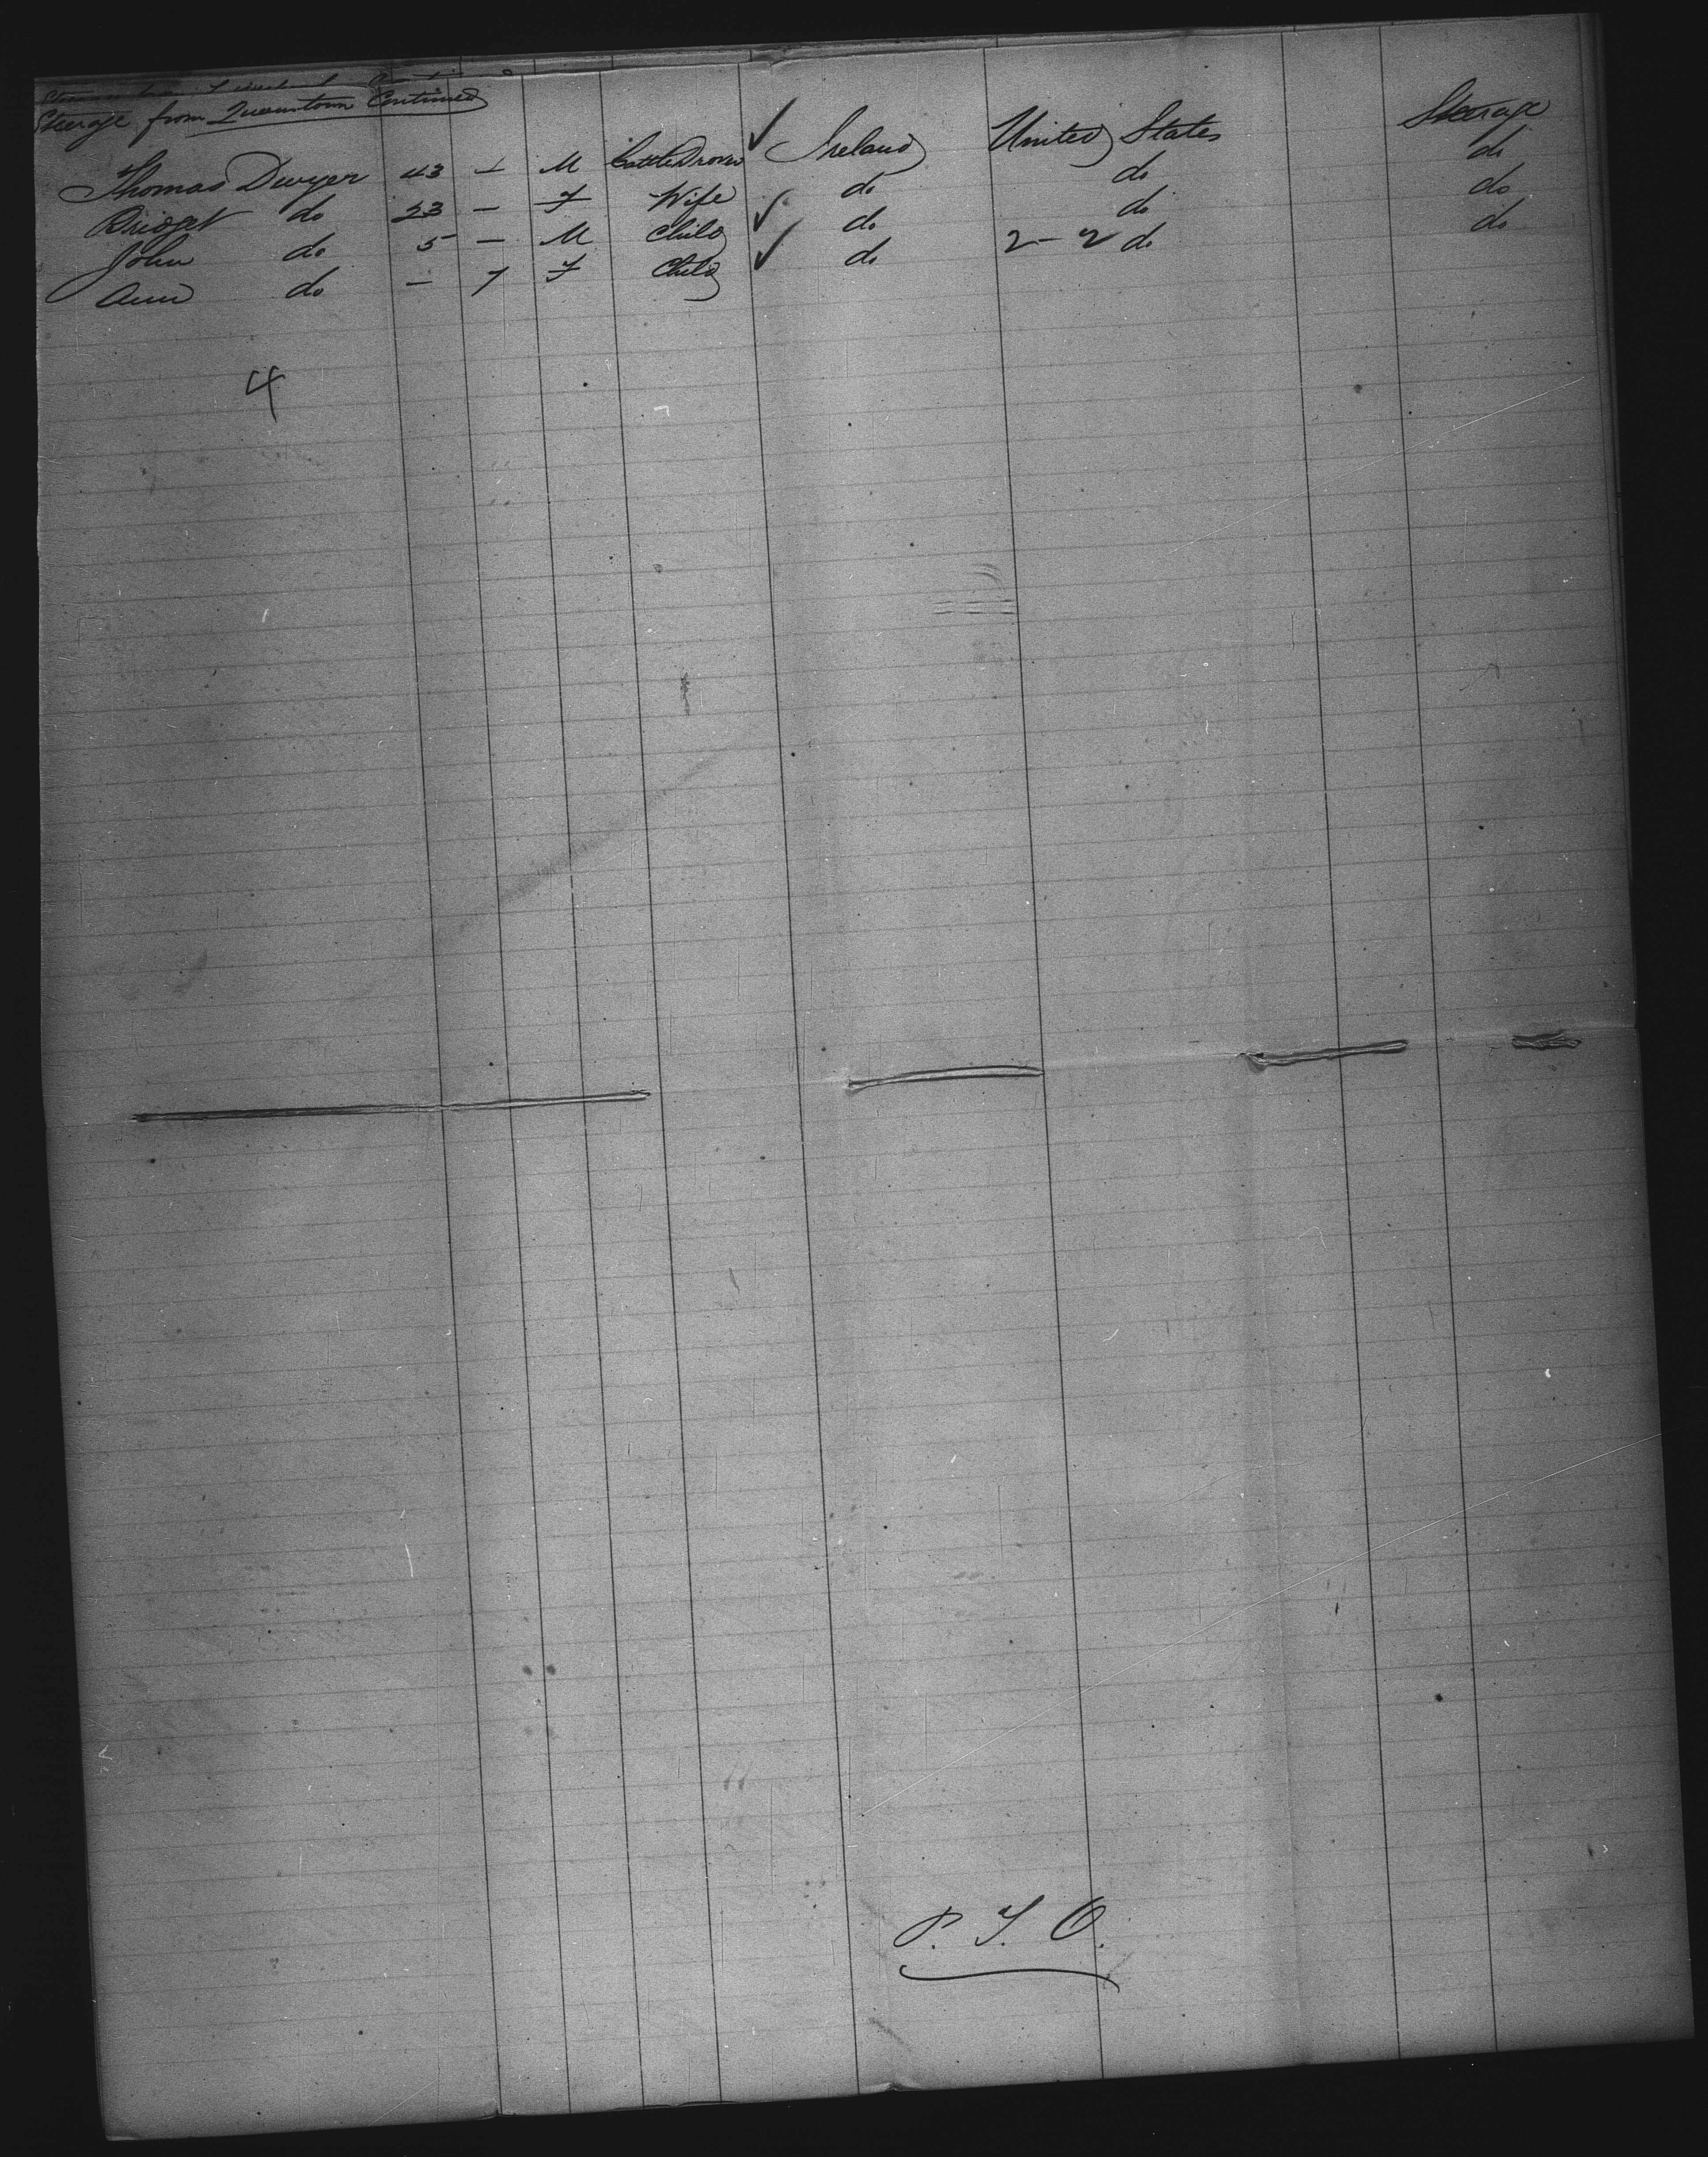 Steerage from Queenstown Continued
Thomas Dwyer 43 - M Cattle Drover ✓ Ireland United States Steerage
Bridget do 23 - F Wife do do do
John do 5 - M Child ✓ do do do
Ann do - 7 F Child ✓ do 2 - 2 do do
4
P. T. O.